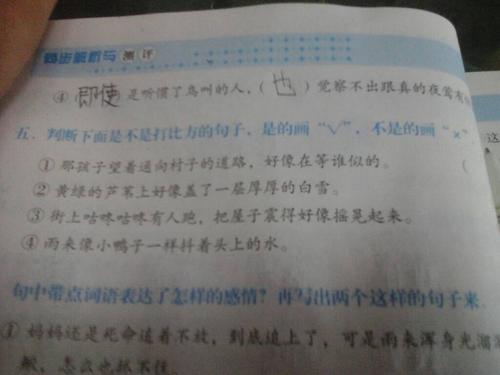 同步解析与测评
④ 即使 是听惯了鸟叫的人，（也）觉察不出跟真的夜莺有
五．判断下面是不是打比方的句子，是的画“√”，不是的画“×”
这
① 那孩子望着通向村子的道路，好像在等谁似的。（
② 黄绿的芦苇上好像盖了一层厚厚的白雪。
③ 街上咕咚咕咚有人跑，把屋子震得好像摇晃起来。
④ 雨来像小鸭子一样抖着头上的水。
句中带点词语表达了怎样的感情？再写出两个这样的句子来
① 妈妈还是死命追着不放，到底追上了，可是雨来浑身光溜溜
，怎么也抓不住。